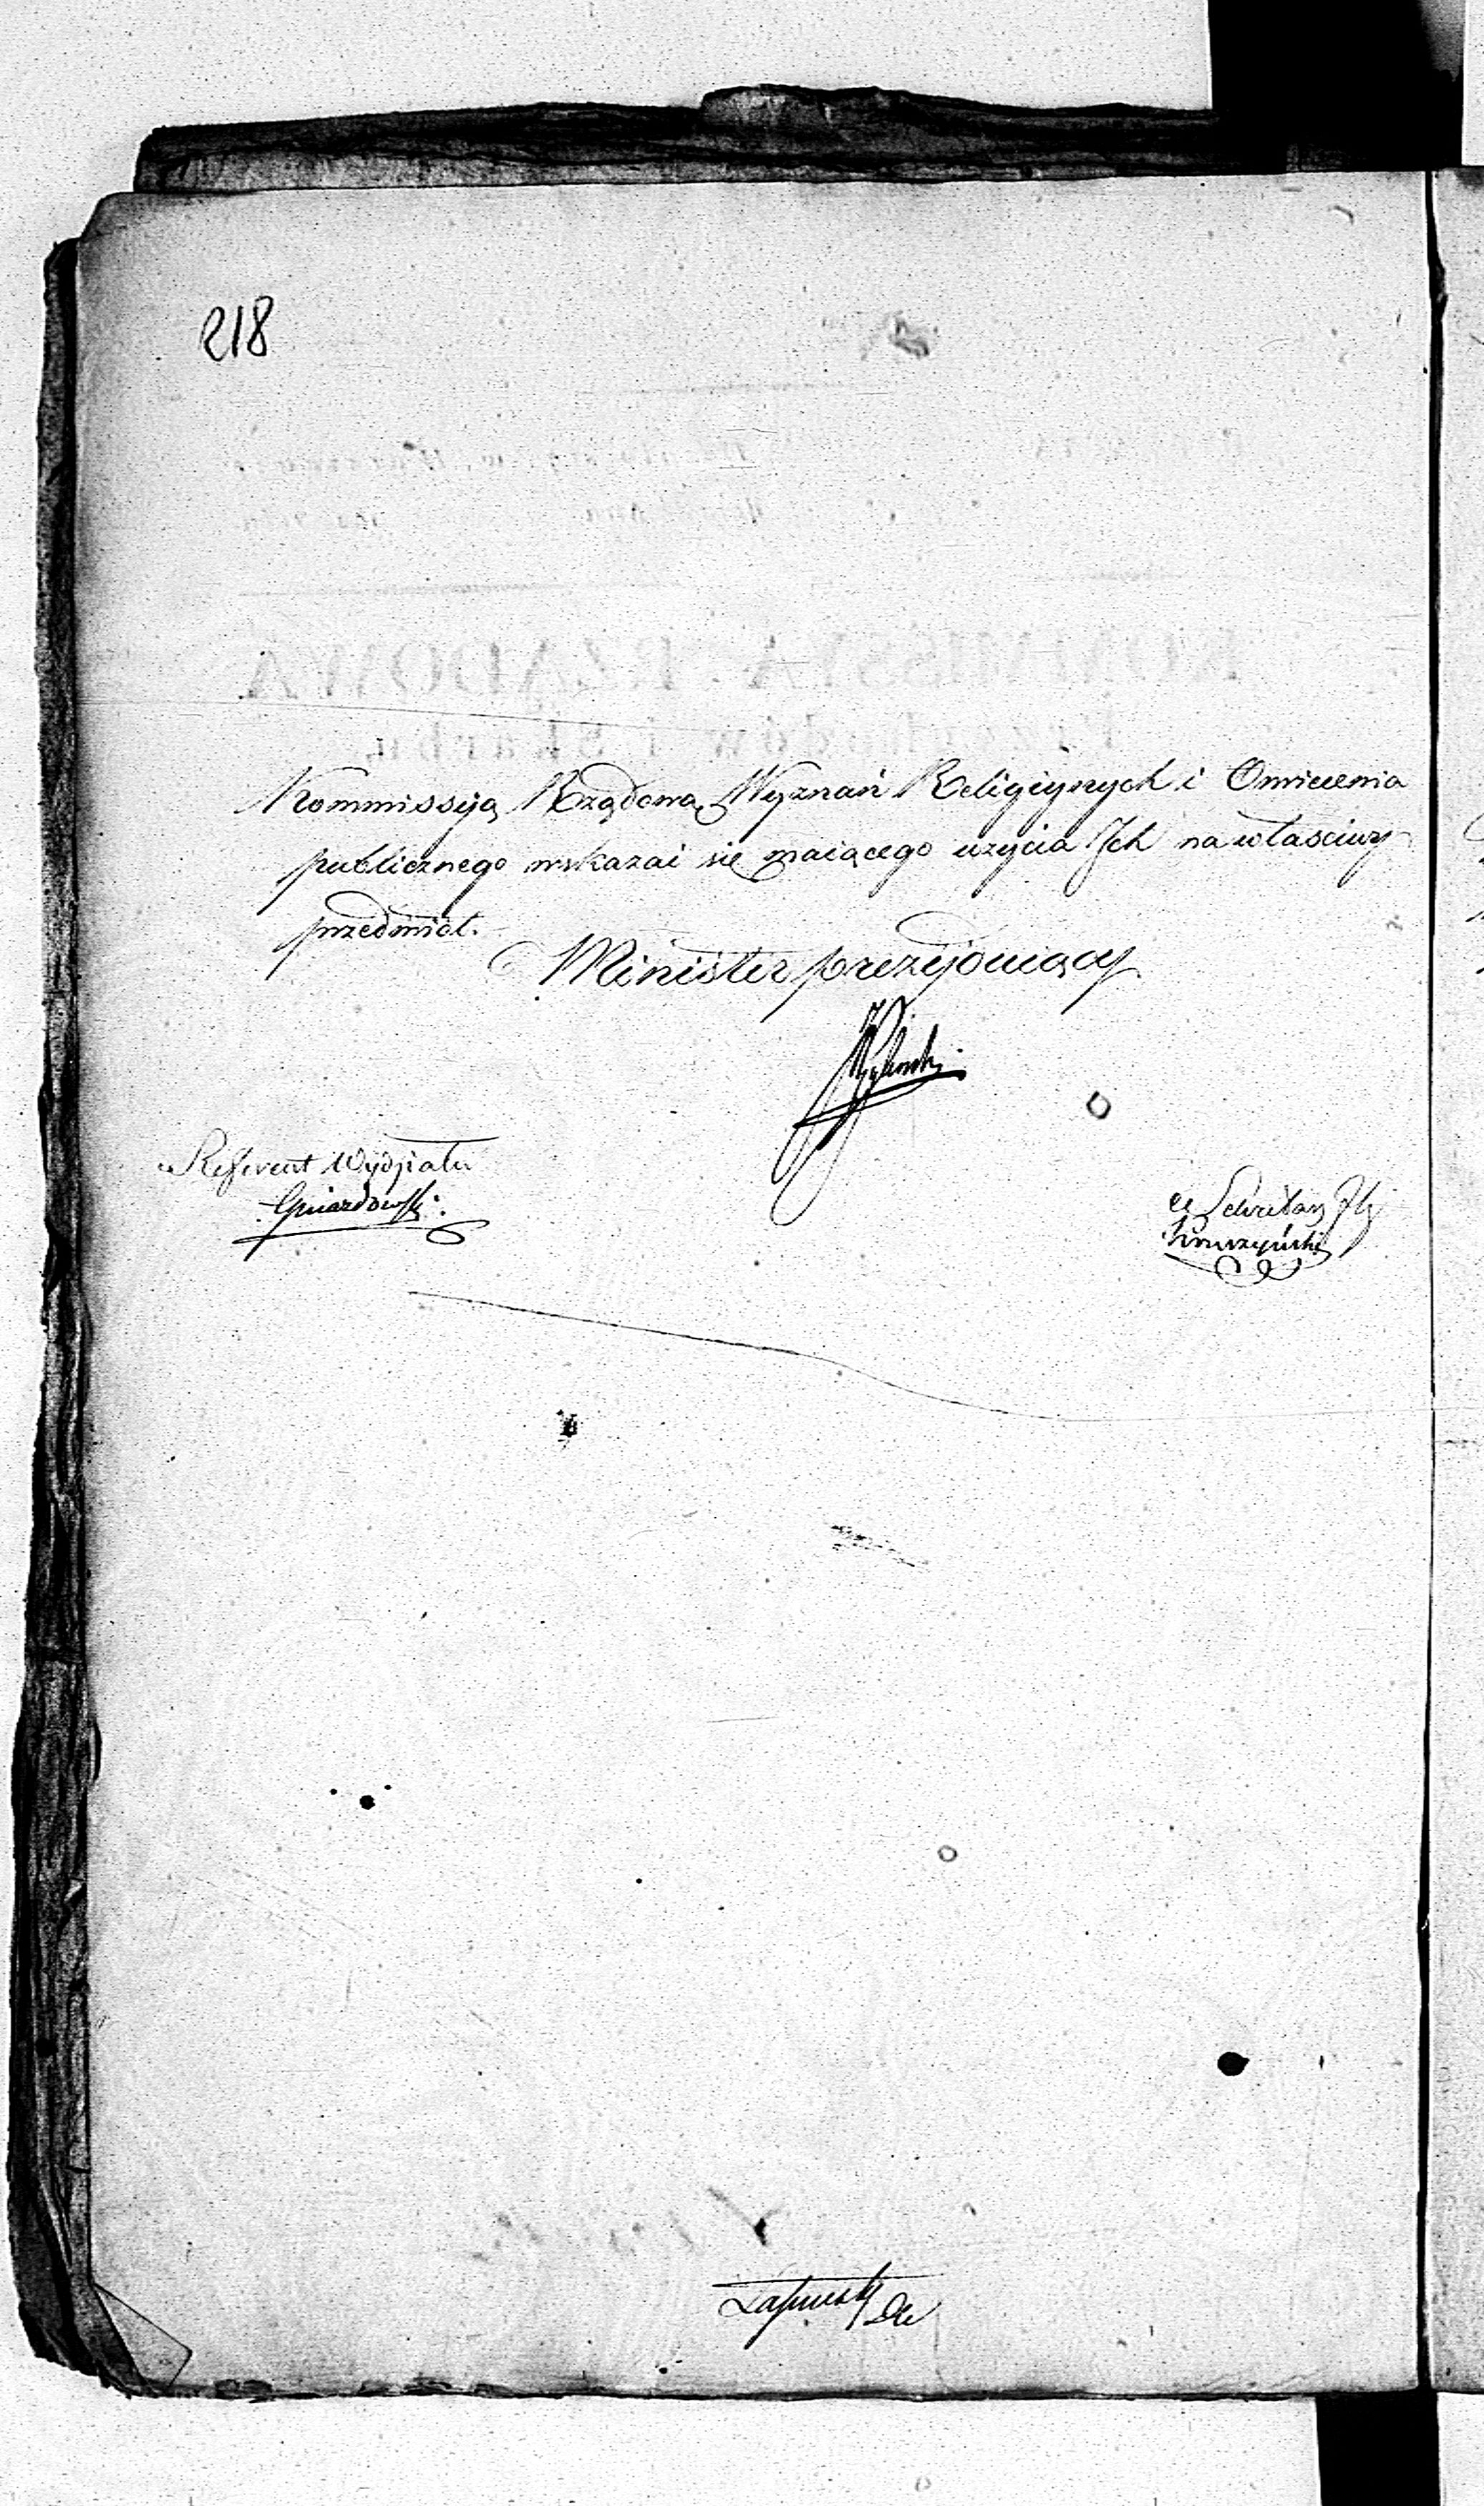 218
Kommissyą Rządową Wyznań Religiynych i Oswiecenia
publicznego wskazać się maiącego użycia Ich na właściwy
przedmiot.
Minister prezyduiący
Referent Wydziału
Gniazdowski
Sekretarz Jlny